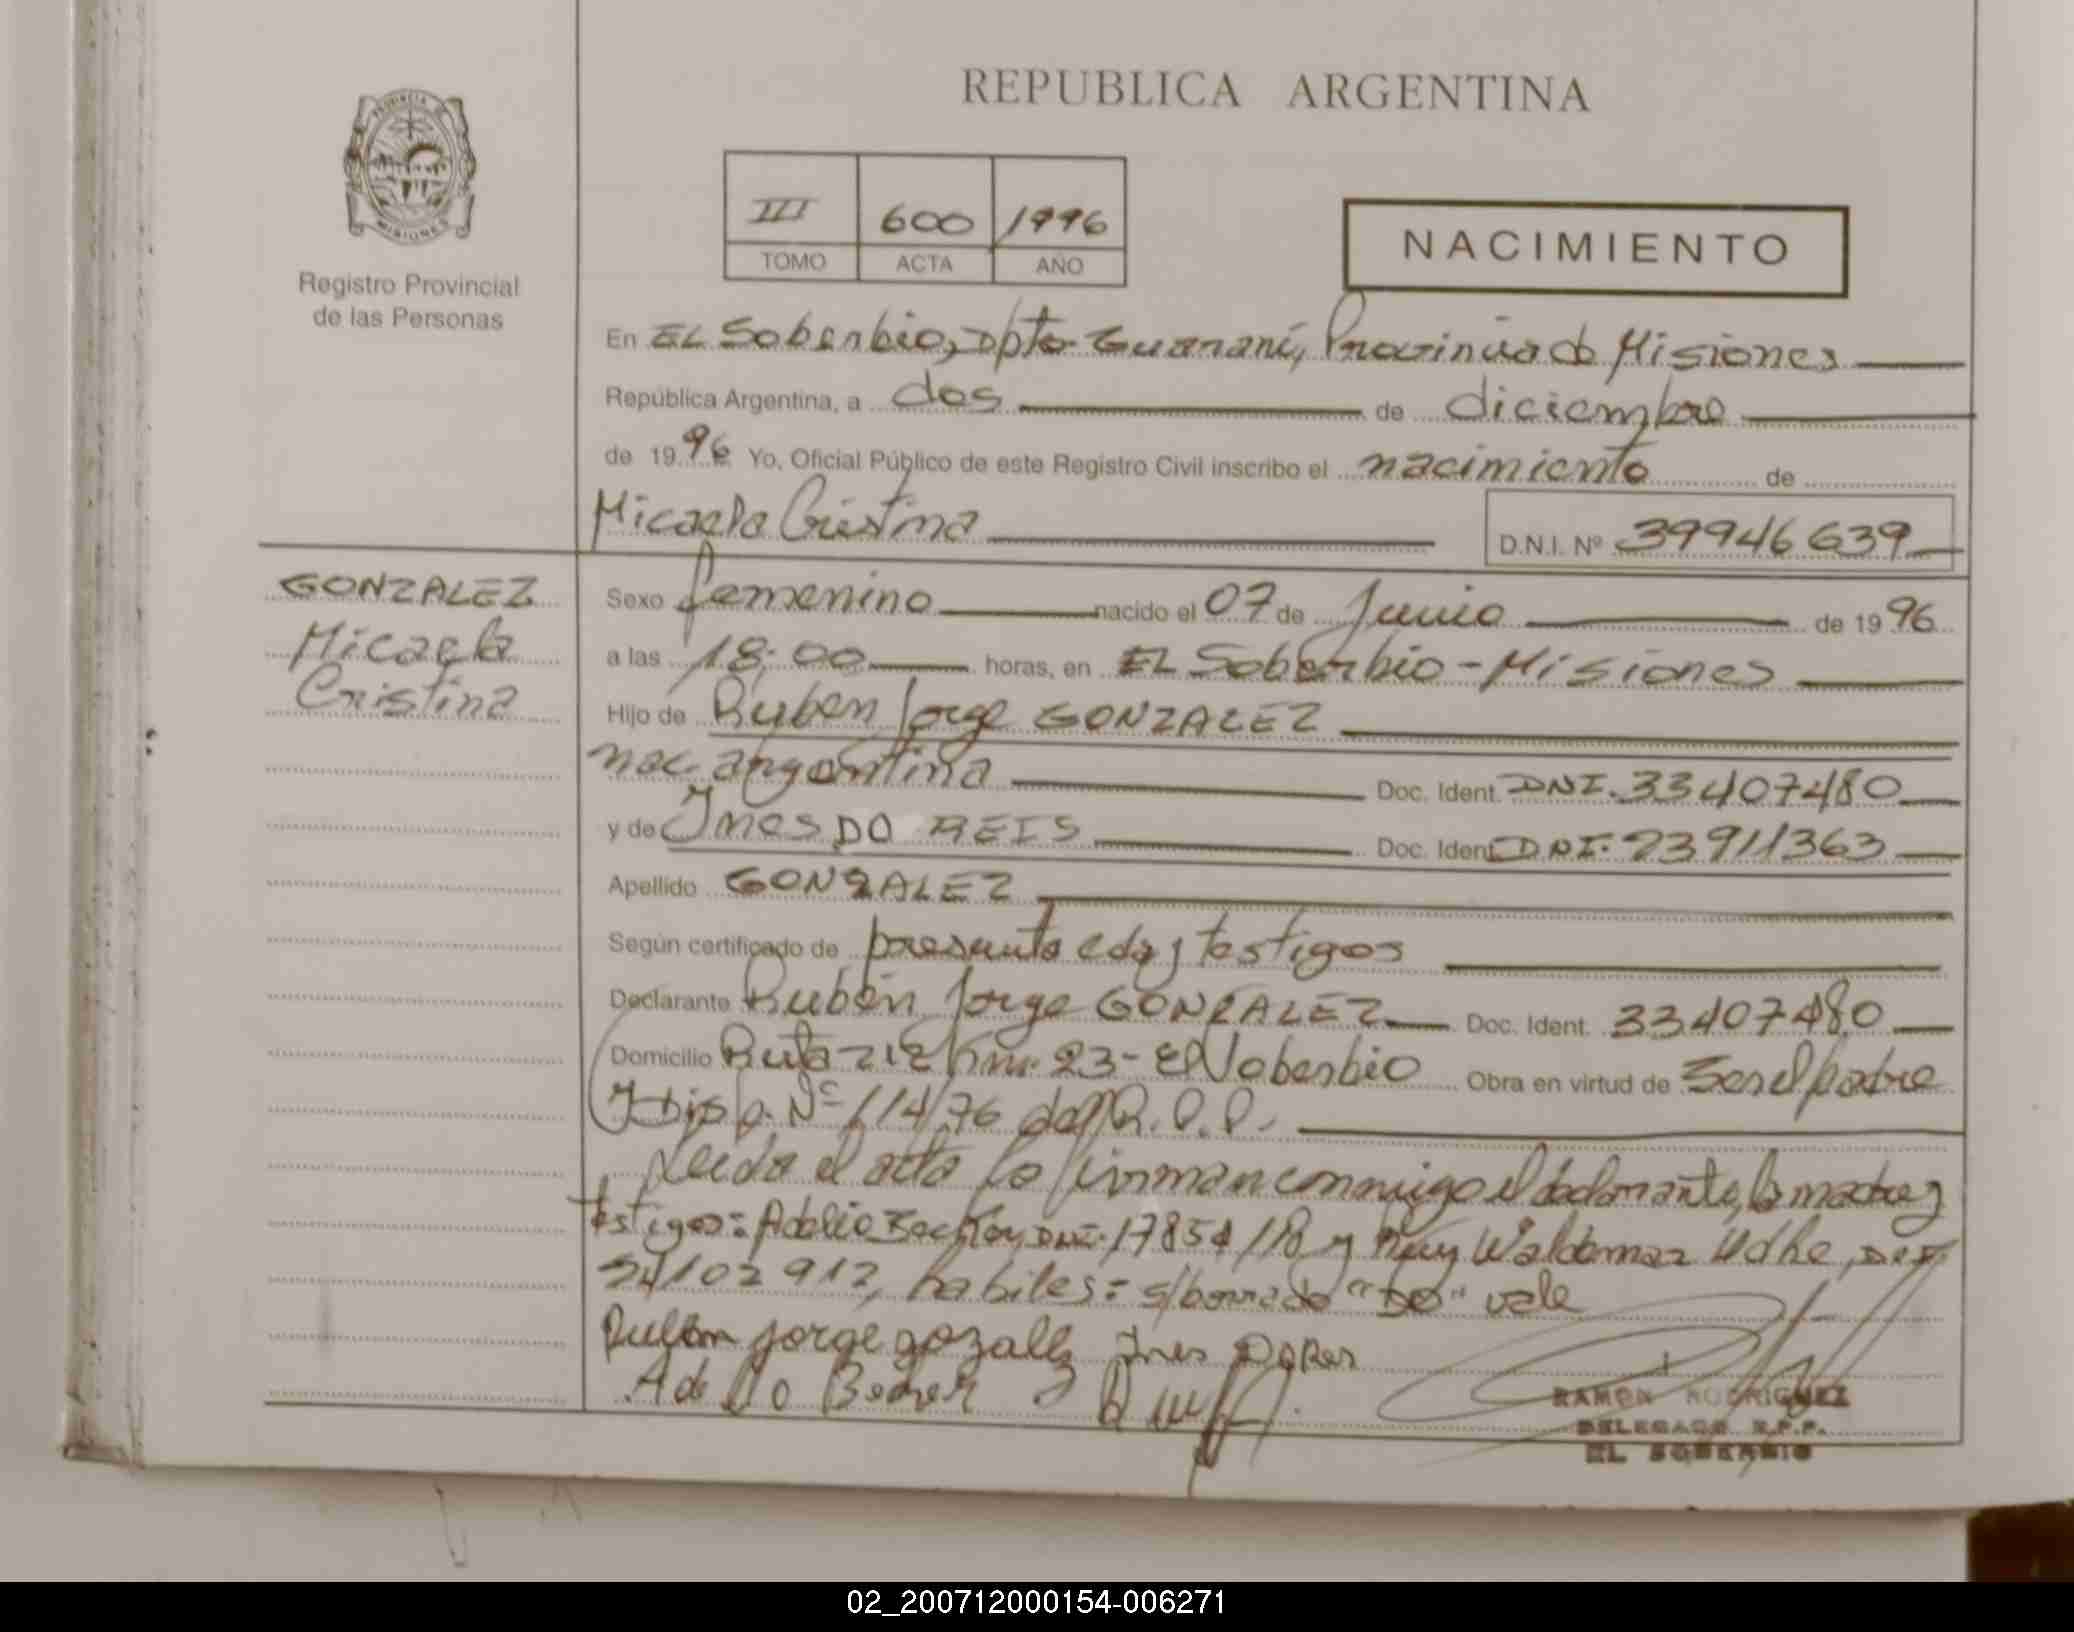 REPUBLICA ARGENTINA
PROVINCIA DE
MISIONES
Registro Provincial
de las Personas
III 600 1996
TOMO ACTA AÑO
NACIMIENTO
En EL Soberbio, Dpto Guaraní, Provincia de Misiones
República Argentina, a dos de diciembre
de 1996 Yo, Oficial Público de este Registro Civil inscribo el nacimiento de
Micaela Cristina
D.N.I. Nº 39946639
GONZALEZ
Micaela
Cristina
Sexo femenino nacido el 07 de Junio de 1996
a las 18:00 horas, en EL Soberbio - Misiones
Hijo de Ruben Jorge GONZALEZ
nac. argentina Doc. Ident. DNI. 33407480
y de Ines DO REIS Doc. Ident DNI. 23911363
Apellido GONZALEZ
Según certificado de presunta edad y testigos
Declarante Rubén Jorge GONZALEZ Doc. Ident. 33407480
Domicilio Ruta 212 Km. 23 - El Soberbio Obra en virtud de Ser el padre
y Disp. Nº 114/76 del R.P.P.
Leida el acta la firman conmigo el declarante, la madre y
testigos: Adelio DNI. 17854118 y Ruy Waldemar Udhe, DNI
24102912, habiles = s/borrado "DO" vale
Ruben jorge gozalez Ines
Adelio
RAMON RODRIGUEZ
DELEGADO R.P.P.
EL SOBERBIO
02_200712000154-006271